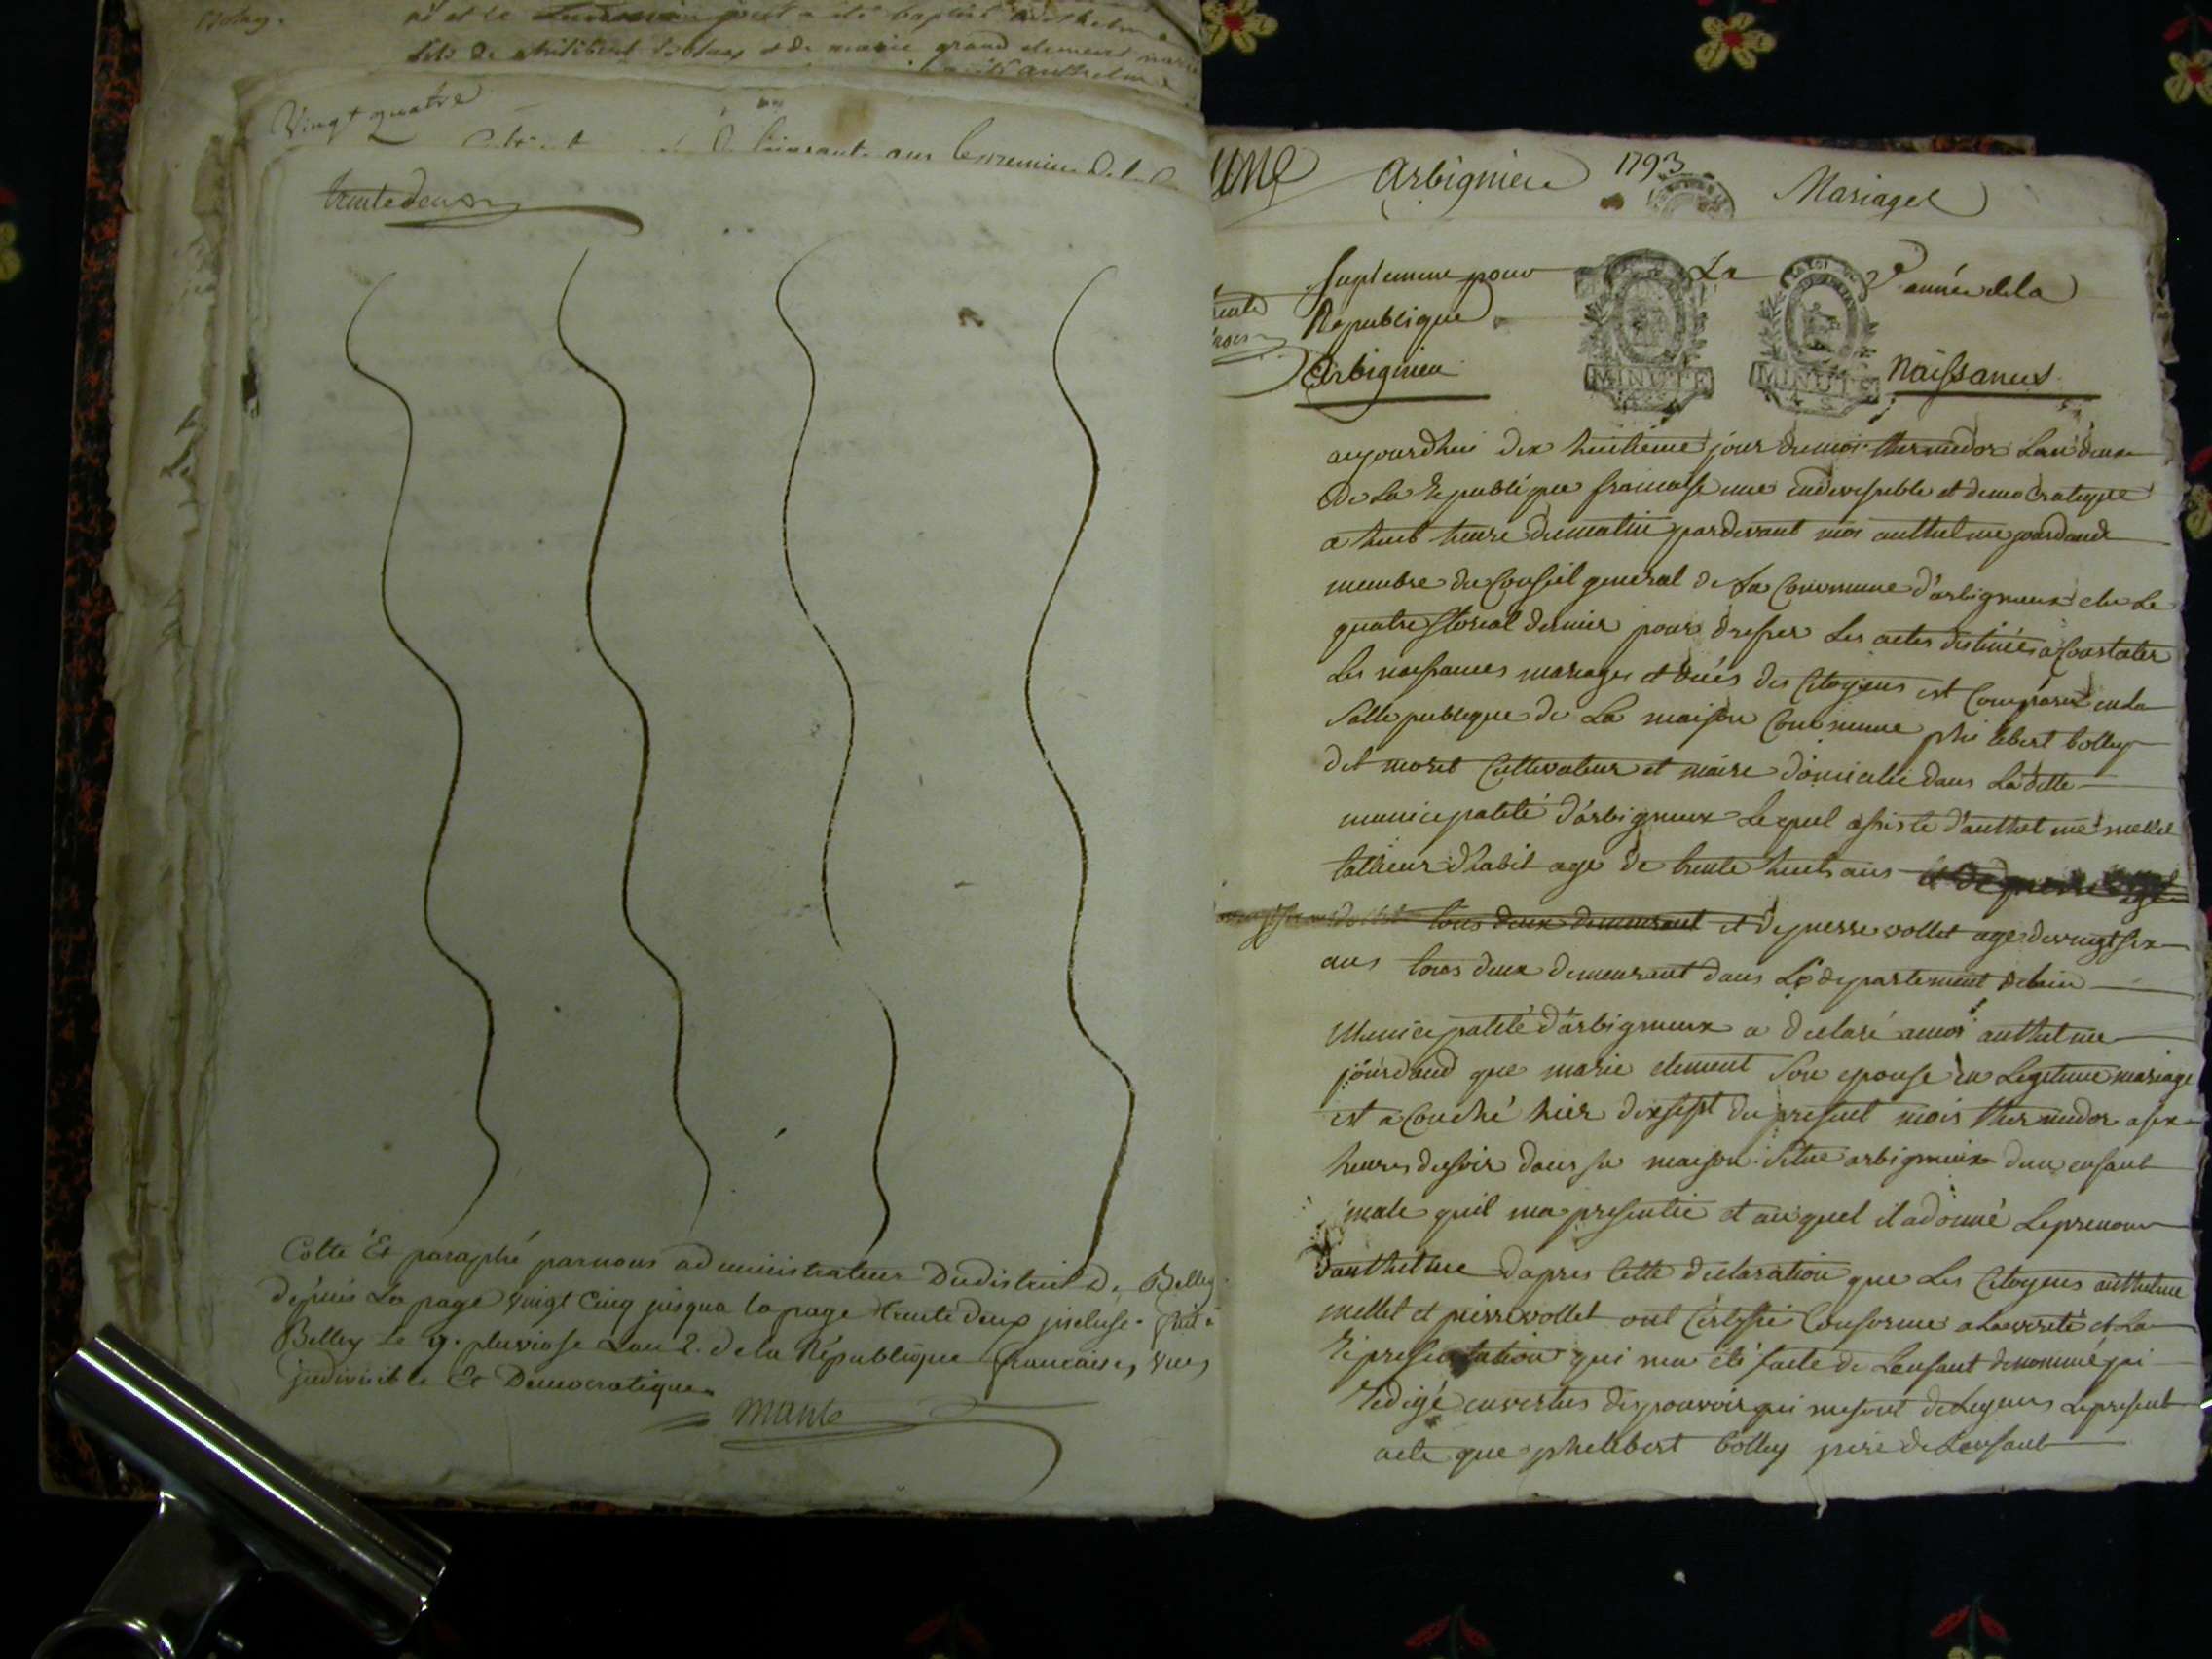 né et le
fils de philibert bolley et de marie grand clement
Vingt quatre
trentedeux
Cotté Et paraphé parnous administrateur Dudistrict De Belley
depuis La page vingt Cinq jusqua la page trente deux incluse. fait a
Belley Le 9. pluviose Lan 2. de la République francaise, une,
indivisible Et Democratique.
mante
Arbignieu 1793 Mariages
Suplement pour La 2e année de la
République
Arbignieu Naissances
MINUTE MINUTE
aujourdhui dix huitieme jour dumois thermidor Lan deux
de La Republique francaise une indivisible et democratique
a huit heure dumatin pardevant moi anthelme jourdand
membre du Conseil general de La Commune d'arbignieux elu Le
quatre floreal dernier pour dresser Les actes destinés a Constater
Les naissances mariages et décés des Citoyens est Comparu en La
Salle publique de La maison Commune philibert bolley
dit moret Cultivateur et maire domicilié dans La dette
municipalité d'arbignieux Lequel assisté d'anthelme mellet
tallieur d'habit agé de trente huit ans
tous deux demeurant et de pierre vollet agé de vingt six
ans tous deux demeurant dans Le departement delain
Municipalité d'arbignieux a declaré amoi anthelme
jourdand que marie clement Son epouse en Legitime mariage
est acouché hier dixsept du present mois thermidor a six
heures du soir dans sa maison Situe arbignieux dun enfant
male quil ma presentée et auquel il a donné Le prenom
d'anthelme dapres Cette declaration que Les Citoyens anthelme
mellet et pierre vollet ont Certifié Conforme a La verité et La
représentation qui ma été faite de Lenfant denommé jai
redigé envertus des pouvoir qui me sont delegués Le present
acte que philibert bolley pere de Lenfant